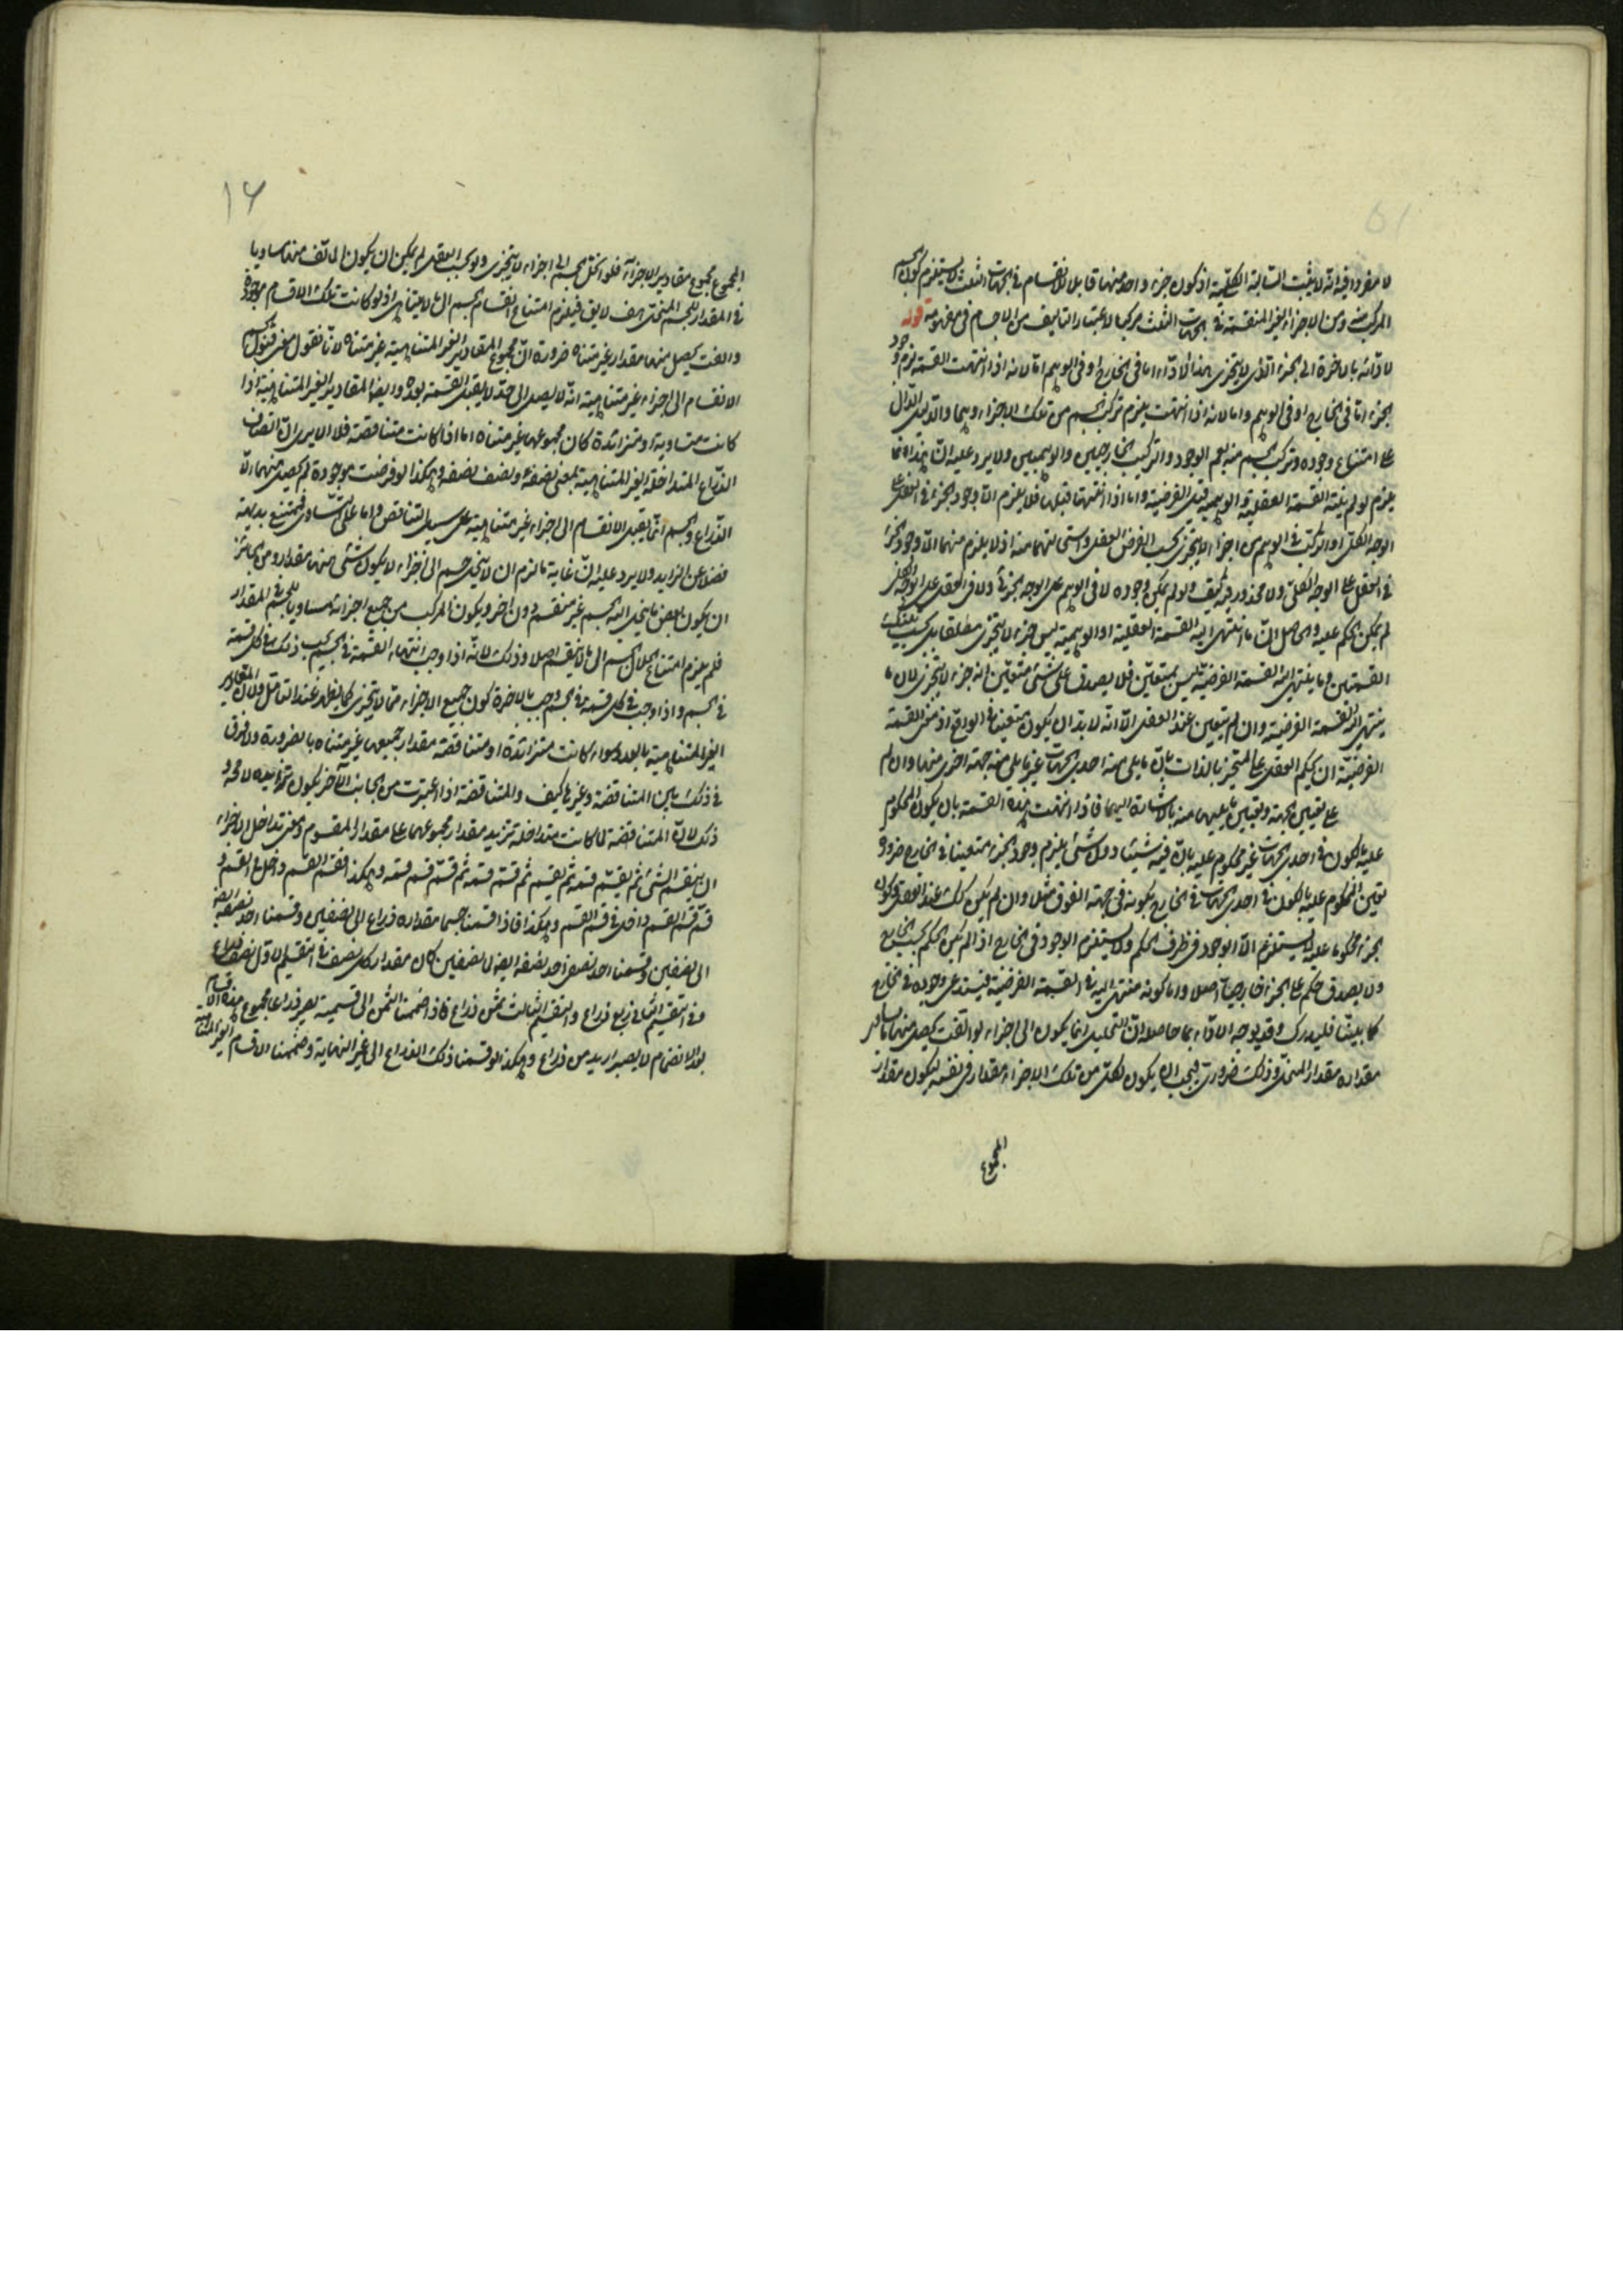 لا مفردا فيه انه لا يثبت السالبة الكلية اذ كون جزء واحد منها قابلا للانقسام في الجهات الثلث لا يستلزم كون الجسم
المركب منه ومن الاجزاء الغير المنقسمة في الجهات الثلث مركبا لاعتبار التاليف من الاجسام في مفهومه قوله
لادائه بالاخرة الى الجزء الذي لا يتجزى هذا الاداء اما في الخارج او في الوهم اما لانه اذا انتهت القسمة لزم وجود
الجزء اما في الخارج او في الوهم واما لانه اذا انتهت يلزم تركب الجسم من تلك الاجزاء وهما والدليل الدال
على امتناع وجوده وتركب الجسم منه يعم الوجود والتركيب الخارجيين والوهميين ولا يرد عليه ان هذا انما
يلزم لو لم ينته القسمة العقلية والوهمية قبل الفرضية واما اذا انتهتا قبلها فلا يلزم الا وجود الجزء في العقل على
الوجه الكلي او التركب في الوهم من اجزاء لا يتجزى بحسب الفرض العقلي اذ لا يلزم منهما الا وجود الجزء
في العقل على الوجه الكلي ولا محذور فيه كيف ولو لم يمكن وجوده لا في الوهم على الوجه الجزئي ولا في العقل على الوجه الكلي
لم يمكن الحكم عليه والحاصل ان ما انتهى اليه القسمة العقلية او الوهمية ليس جزء لا يتجزى مطلقا بل بحسب تلك
القسمتين وما ينتهي اليه القسمة الفرضية ليس بمتعين فلا يصدق على شئ متعين انه جزء لا يتجزى لان ما
ينتهي اليه القسمة الفرضية وان لم يتعين عند العقل الا انه لا بد ان يكون متعينا في الواقع اذ معنى القسمة
الفرضية ان يحكم العقل على المتحيز بالذات بان ما يلي منه احدى الجهات غير ما يلي منه جهة اخرى منها وان لم
على تعيين الجهة وتعيين ما يليها منه بالاشارة اليهما فاذا انتهت هذه القسمة بان يكون المحكوم
عليه بالكون في احدى الجهات غير محكوم عليه بان فيه شيئا دون شئ يلزم وجود الجزء متعينا في الخارج ضرورة
تعين المحكوم عليه بالكون في احدى الجهات في الخارج بكونه في جهة الفوق مثلا وان لم يكن كذلك عند العقل وكون
الجزء محكوما عليه لا يستلزم الا الوجود في ظرف الحكم ولا يستلزم الوجود في الخارج اذا لم يكن الحكم بحسب الخارج
ولا يصدق حكم على الجزء خارجيا اصلا واما كونه منتهى اليه في القسمة الفرضية فيستدعي وجوده في الخارج
كما بينا فليدرك وقد يوجه الاداء بما حاصله ان التحليل انما يكون الى اجزاء لو ائتلفت يحصل منها ما يساوي
مقداره مقدار المنحل وذلك ضروري فيجب ان يكون لكل من تلك الاجزاء مقدار في نفسه ليكون مقدار
المجموع
١٦
المجموع مجموع مقادير الاجزاء فلو انحل الجسم الى اجزاء لا يتجزى ولو بحسب العقل لم يمكن ان يكون المؤلف منها مساويا
في المقدار للجسم المنحل هف لا يق فيلزم امتناع انقسام الجسم الى ما لا يتناهى اذ لو كانت تلك الاقسام موجودة
والفت يحصل منها مقدار غير متناه ضرورة ان مجموع المقادير الغير المتناهية غير متناه لانا نقول معنى قبول الجسم
الانقسام الى اجزاء غير متناهية انه لا يصل الى حد لا يقبل القسمة بعده وايضا المقادير الغير المتناهية اذا
كانت متساوية او متزائدة كان مجموعها غير متناه اما اذا كانت متناقصة فلا الا يرى ان انصاف
الذراع المتداخلة الغير المتناهية بمعنى نصفه ونصف نصفه وهكذا لو فرضت موجودة لم يحصل منها الا
الذراع والجسم انما يقبل الانقسام الى اجزاء غير متناهية على سبيل التناقص واما على التساوي فممتنع بديهة
فضلا عن الزايد ولا يرد عليه ان غاية ما لزم ان لا ينحل جسم الى اجزاء لا يكون لشئ منها مقدار ومن الجائز
ان يكون بعض ما ينحل اليه الجسم غير منقسم دون اخر ويكون المركب من جميع اجزائه مساويا للجسم في المقدار
فلم يلزم امتناع انحلال الجسم الى ما لا ينقسم اصلا وذلك لانه اذا وجب انتهاء القسمة في الجسم يجب ذلك في كل قسمة
في الجسم واذا وجب في كل قسمة في الجسم وجب بالاخرة كون جميع الاجزاء مما لا يتجزى كما يظهر عند التامل ولان المقادير
الغير المتناهية بالعدد سواء كانت متزائدة او متناقصة مقدار جميعها غير متناه بالضرورة ولا فرق
في ذلك بين المتناقصة وغيرها كيف والمتناقصة اذا اعتبرت من الجانب الآخر يكون متزائدة لا محة
ذلك لان المتناقصة لما كانت متداخلة تزيد مقدار مجموعها على مقدار المقسوم ومعنى تداخل الاجزاء
ان ينقسم الشئ ثم يقسم قسمه ثم يقسم ثم قسم قسمه ثم قسم قسم قسمه وهكذا فقسم القسم داخل في القسم و
قسم قسم القسم داخل في قسم القسم وهكذا فاذا قسمنا جسما مقداره ذراع الى نصفين وقسمنا احد نصفيه ايضا
الى نصفين وقسمنا احد نصفي احد نصفيه ايضا الى نصفين كان مقدار كل نصف في التقسيم الاول نصف ذراع
وفي التقسيم الثاني ربع ذراع والتقسيم الثالث ثمن ذراع فاذا ضممنا الثمن الى قسيمه يصير ذراعا مجموع هذه الاقسام
بعد الانضمام لا يصير ازيد من ذراع وهكذا لو قسمنا ذلك الذراع الى غير النهاية وضممنا الاقسام الغير المتناهية